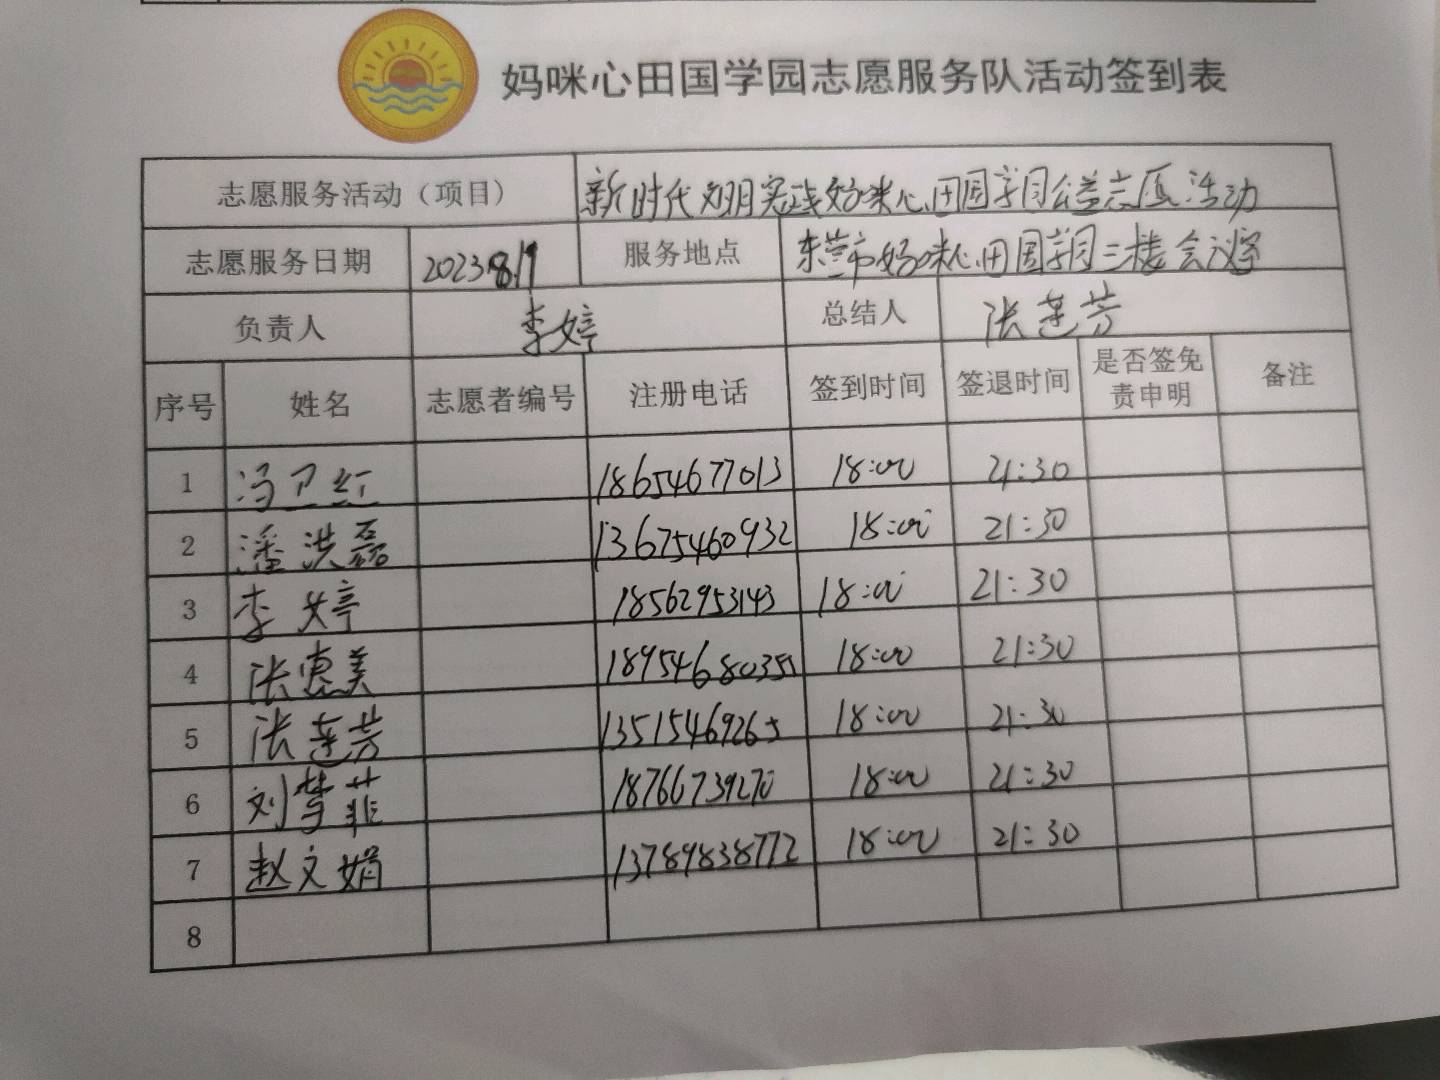 妈咪心田国学园志愿服务队活动签到表
志愿服务活动（项目） 新时代文明实践妈咪心田国学园公益志愿活动
志愿服务日期 2023.8.19 服务地点 东营市妈咪心田国学园三楼会议室
负责人 李婷 总结人 张莲芳
序号 姓名 志愿者编号 注册电话 签到时间 签退时间 是否签免责申明 备注
1 冯卫红 18654677013 18:00 21:30
2 潘洪磊 13675460932 18:00 21:30
3 李婷 18562953143 18:00 21:30
4 张惠美 18:00 21:30
5 张莲芳 13515469265 18:00 21:30
6 刘梦菲 18766739270 18:00 21:30
7 赵文娟 13789838772 18:00 21:30
8